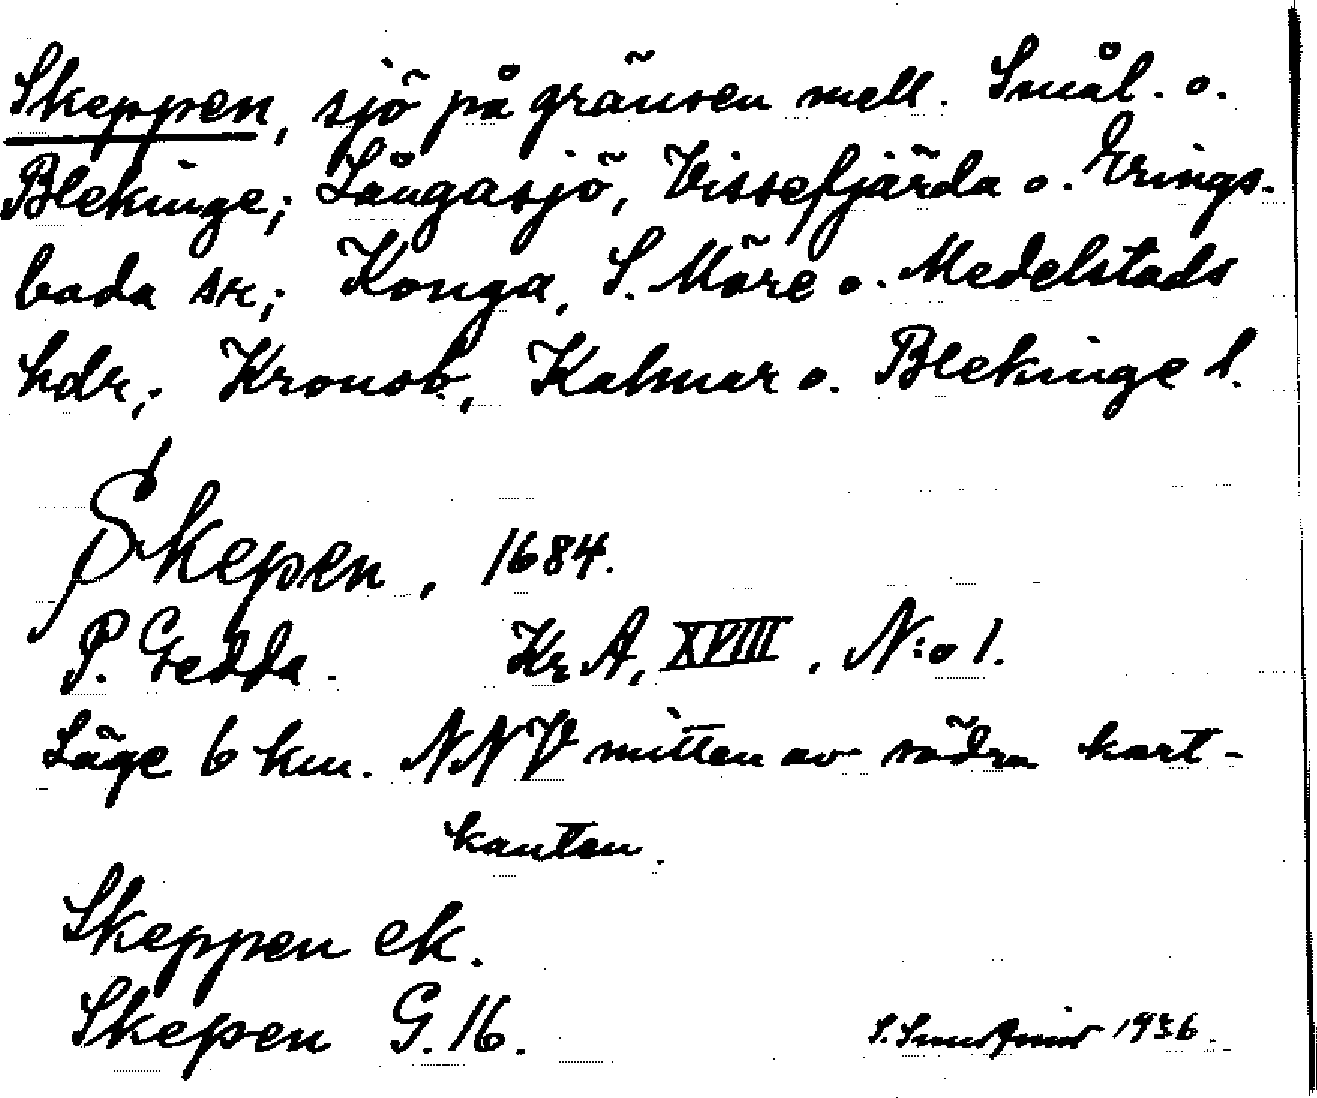 Skeppen, sjö på gränsen mell. Smål. o.
Blekinge; Långasjö, Vissefjärda o. Erings-
boda snr; Konga, S. Möre o. Medelstads
hdr; Kronob., Kalmar o. Blekinge l.
Skepen, 1684.
P. Gedda. Kr. A, XVIII, N:o 1.
Läge 6 km. NNV mitten av södra kart-
kanten.
Skeppen ek.
Skepen G. 16.
S. 1936.